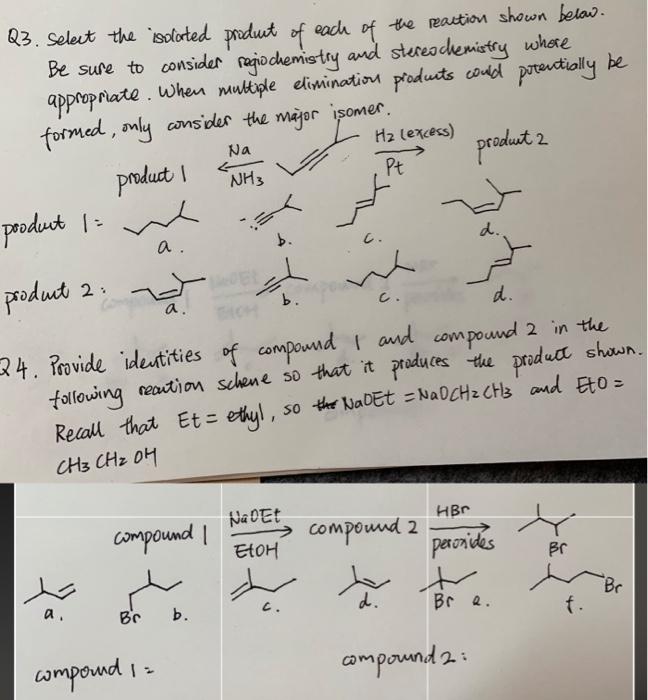 Q3. Select the isolated product of each of the reaction shown below.
Be sure to consider regiochemistry and stereochemistry where
appropriate. When multiple elimination products could potentially be
formed, only consider the major isomer.
product 1 Na NH3 H2 (excess) Pt product 2
product 1 = a. b. c. d.
product 2: a. b. c. d.
Q4. Provide identities of compound 1 and compound 2 in the
following reaction scheme so that it produces the product shown.
Recall that Et = ethyl, so the NaOEt = NaOCH2CH3 and EtO =
CH3CH2OH
compound 1 NaOEt EtOH compound 2 HBr peroxides Br
a. Br b. c. d. Br e. f. Br
compound 1 = compound 2: